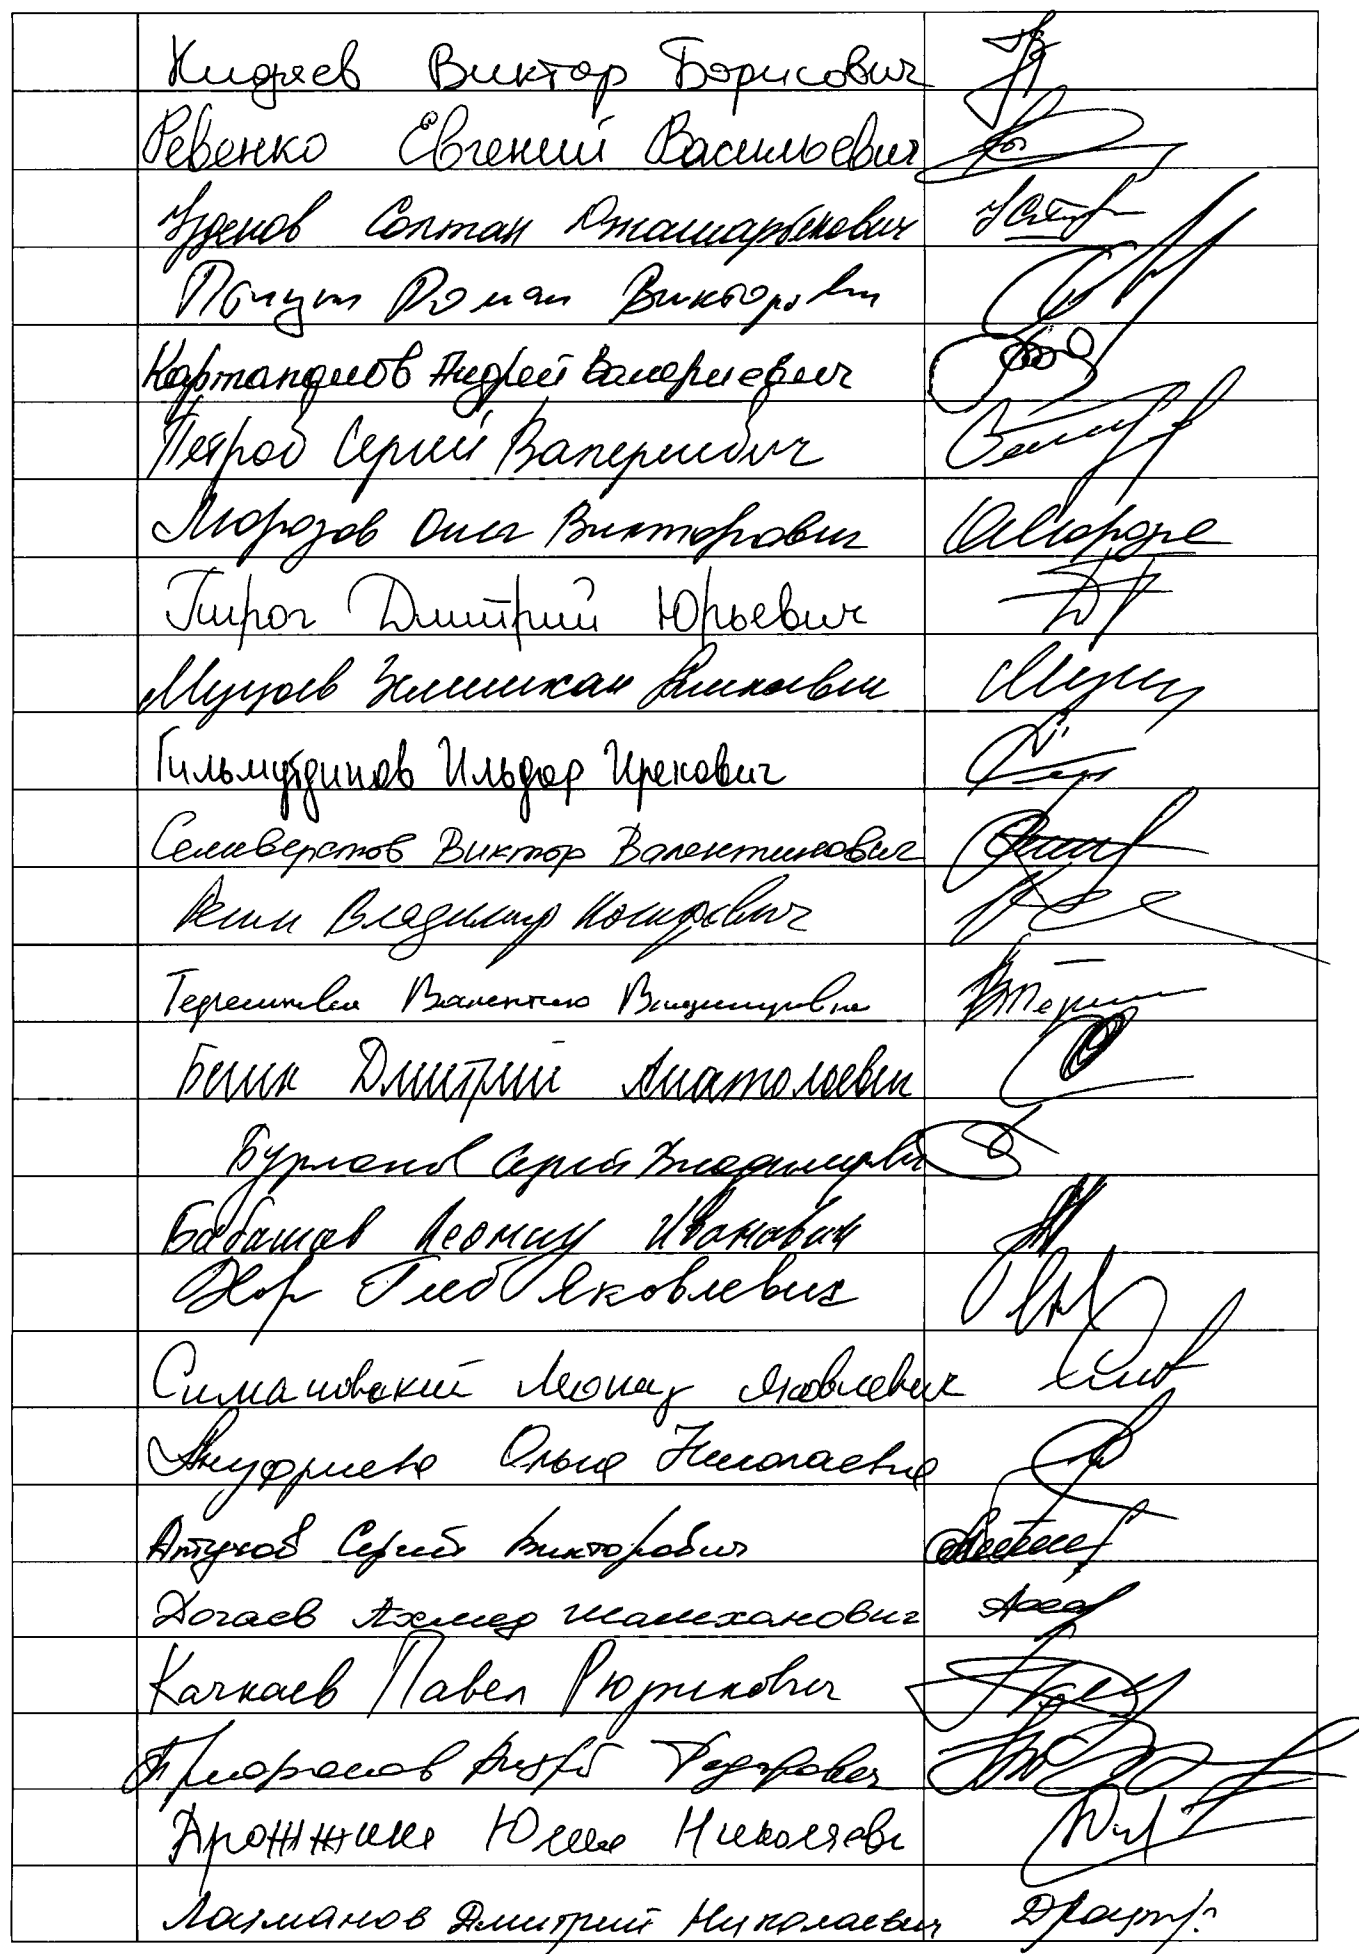 Кидяев Виктор Борисович
Ревенко Евгений Васильевич
Узденов Солтан Джашарбекович
Пицуги Роман Викторович
Картаполов Андрей Валериевич
Петров Сергей Валериевич
Морозов Олег Викторович
Пирог Дмитрий Юрьевич
Муцоев Зелимхан Аликоевич
Гильмутдинов Ильдар Ирекович
Селиверстов Виктор Валентинович
Ресин Владимир Иосифович
Терешкова Валентина Владимировна
Бешн Дмитрий Анатольевич
Бурлаков Сергей Владимирович
Бабашов Леонид Иванович
Хор Глеб Яковлевич
Симановский Леонид Яковлевич
Ануфриева Ольга Николаевна
Алтухов Сергей Викторович
Догаев Ахмед Шамханович
Качкаев Павел Рюрикович
Андрей Федорович
Дрожжина Юлия Николаевн
Лоцманов Дмитрий Николаевич